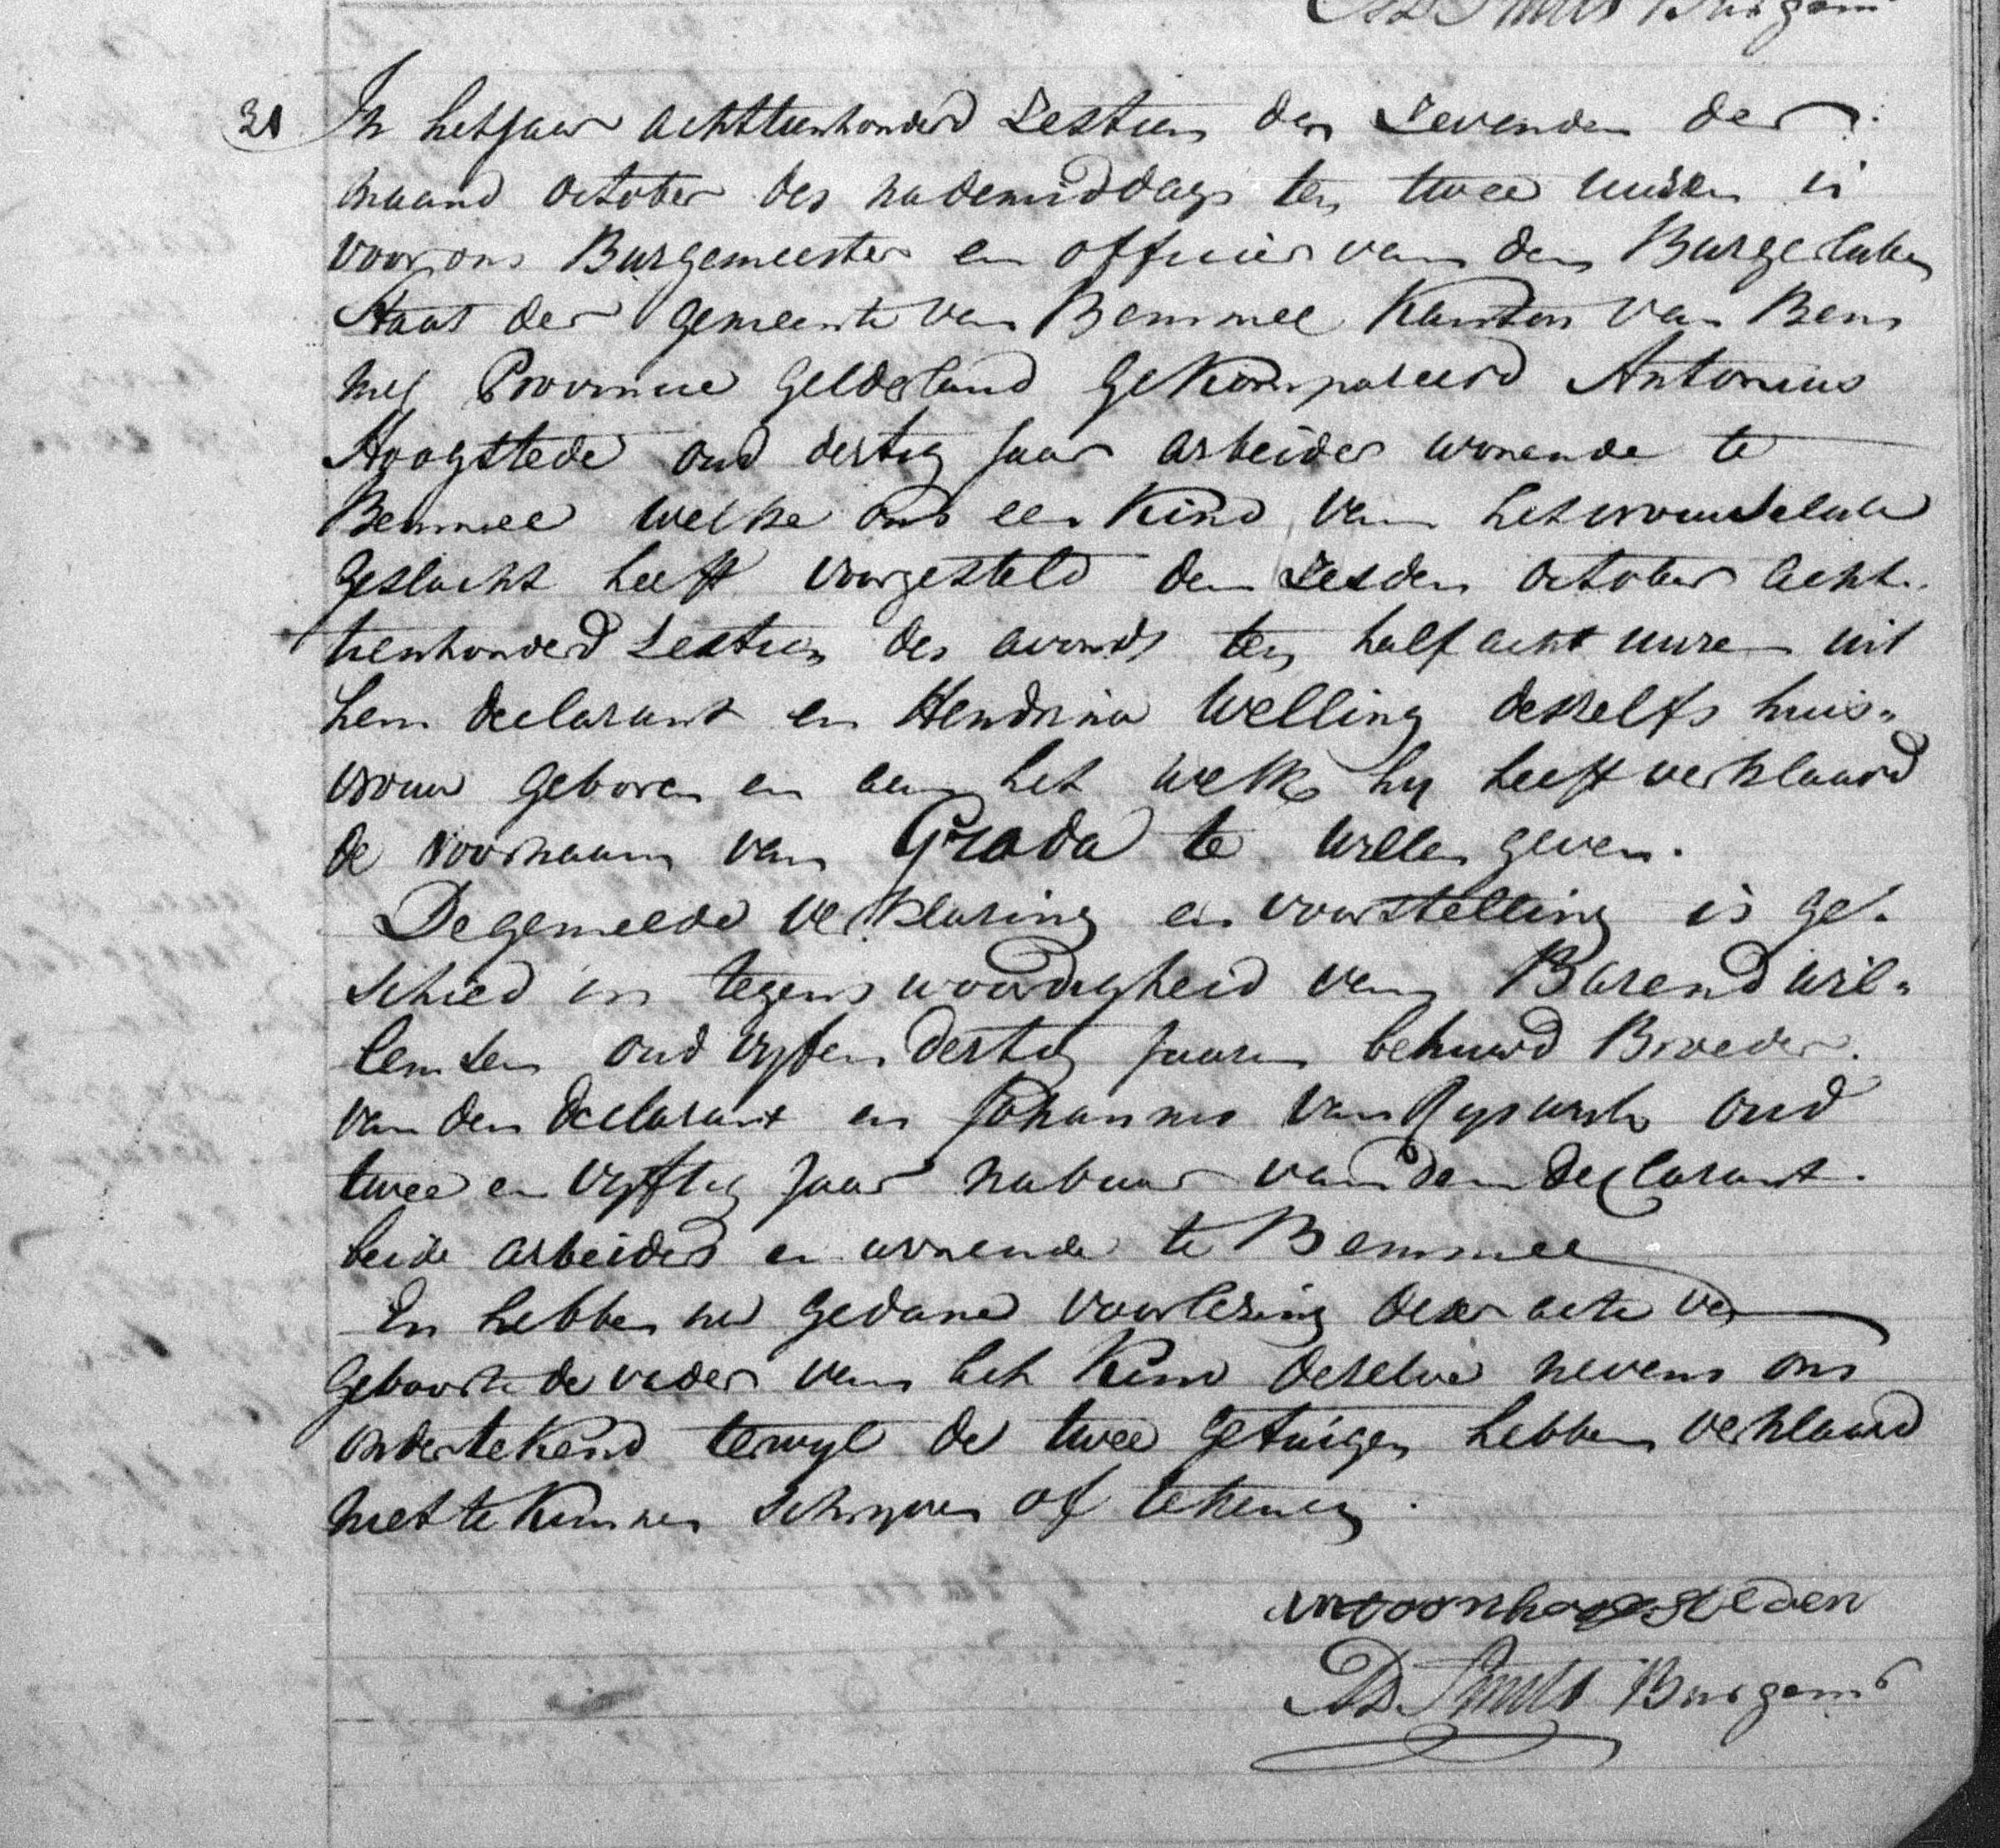 Burgem
31 In het jaar achttienhonderd Zestien den Zevenden der
maand october des nademiddags ten twee uuren is
voor ons Burgemeester en officier van den Burgerlyken
Staat der gemeente van Bemmel Kanton van Bem
mel Provincie Gelderland Gekompareerd Antonius
Hoogstede oud dertig Jaar arbeider wonende te
Bemmel welke ons een Kind van het vrouwelelyk
geslacht heeft voorgesteld den Zesden october acht-
tienhonderd Zestien des avonds ten half acht uuren uit
hem declarant en Hendrina Welling deszelfs huis„
vrouw geboren en aan het welk hy heeft verklaard
de voornaam van Grada te willen geven.
De gemelde verklaring en voorstelling is ge-
schied in tegenswoordigheid van Barend Wil„
lemsen oud vyfen dertig Jaaren behuwd Broeder
van den Declarant en Johannes van oud
twee en vyftig Jaar nabuur van den declarant.
beide arbeiders en wonende te Bemmel
En hebben na gedane voorlezing dezer acte van
geboorte de vader van het Kind dezelve nevens ons
ondertekend terwyl de twee getuigen hebben verklaard
niet te kunnen schryven of tekenen.
antoon hoogsteden
Burgemr